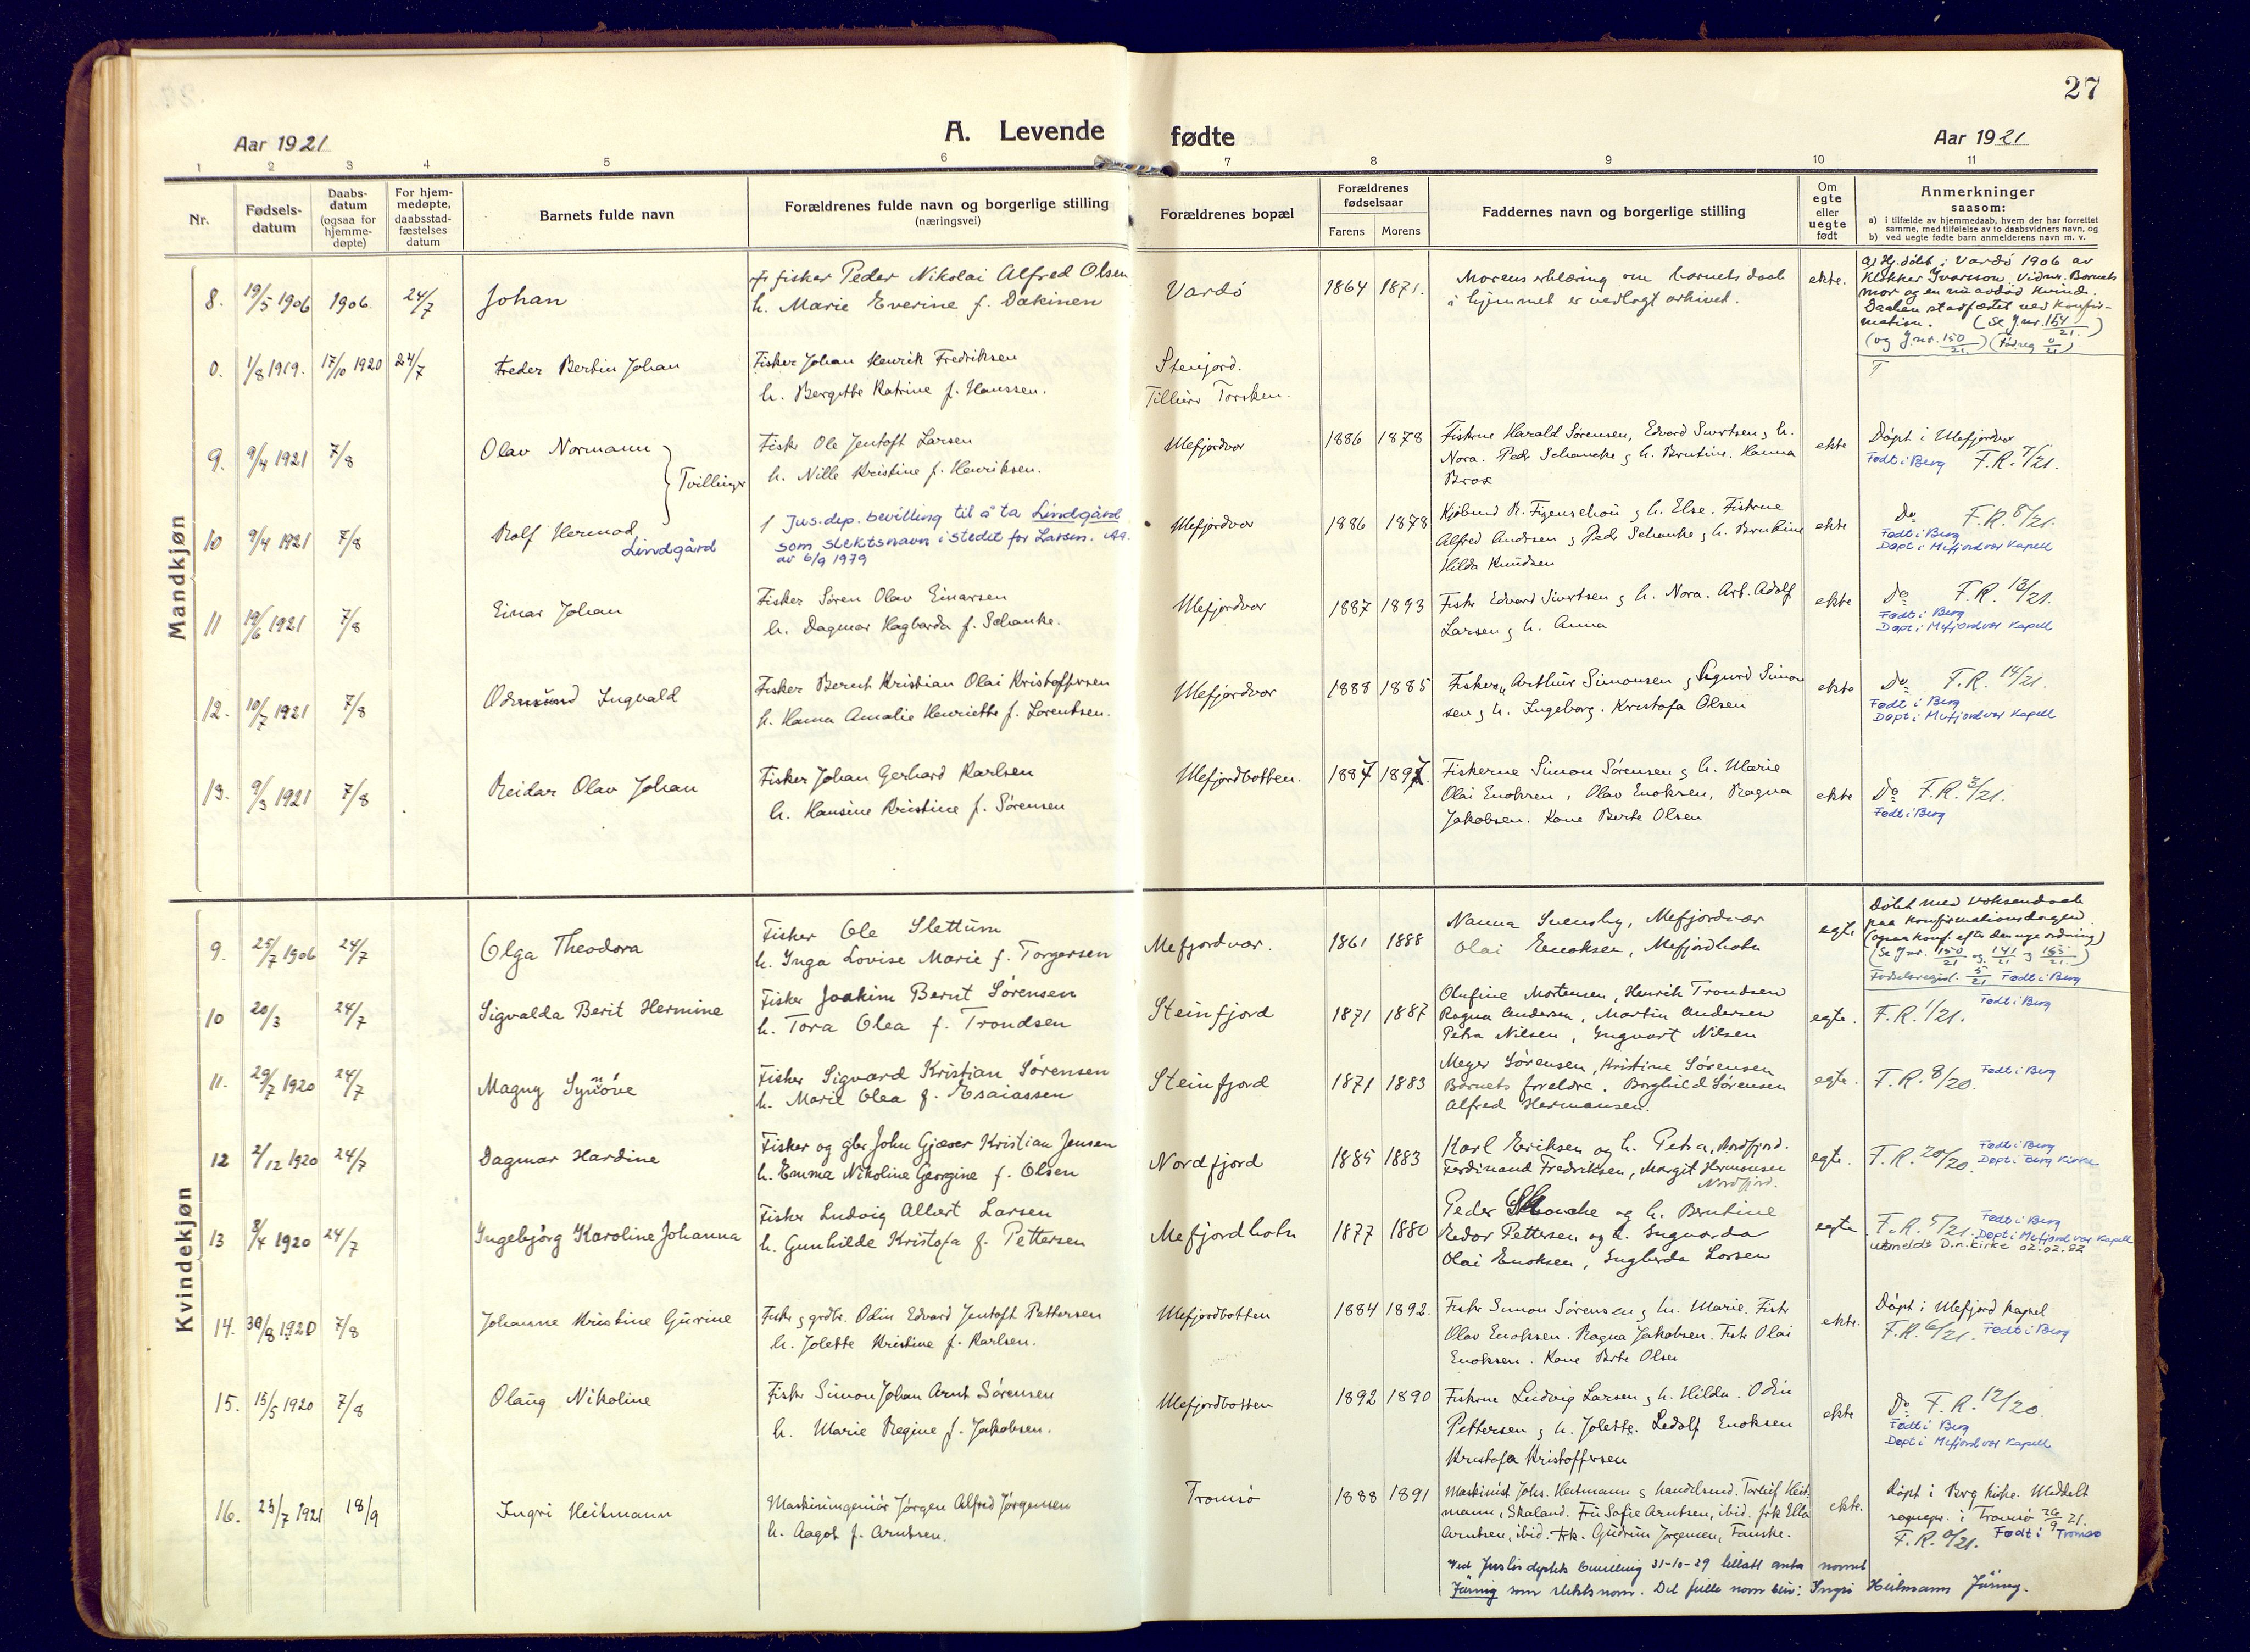 27
Aar 1921
A. Levende fødte
Aar 1921
1 2 3 4 5 6 7 8 9 10 11
Nr.
Fødsels-
datum
Daabs-
datum
(ogsaa for
hjemme-
døpte)
For hjem-
medøpte,
daabsstad-
fæstelses
datum
Barnets fulde navn
Forældrenes fulde navn og borgerlige stilling
(næringsvei)
Forældrenes bopæl
Forældrenes
fødselsaar
Farens Morens
Faddernes navn og borgerlige stilling
Om
egte
eller
uegte
født
Anmerkninger
saasom:
a) i tilfælde av hjemmedaab, hvem der har forrettet
samme, med tilføielse av to daabsvidners navn, og
b) ved uegte fødte barn anmelderens navn m. v.
Mandkjøn
8. 19/5 1906 1906 24/7 Johan
fisker Peder Nikolai Alfred Olsen
h. Marie Everine f. Dakinen
Vardø 1864 1871.
Morens erklæring om barnets daab
i hjemmet er vedlagt arkivet.
ekte.
a) Hj. døbt i Vardö 1906 av
Klokker Ivarsson. Vidner. Barnets
mor og en nu avdød kvinde.
Daaben stadfæstet ved konfir-
mation. (Se J.nr. 154/21)
(og J.nr. 150/21) (Fødreg 0/21)
0. 1/8 1919. 17/10 1920 24/7 Peder Bertin Johan
Fisker Johan Henrik Fredriksen
h. Bergitte Katrine f. Hanssen.
Stenjord.
Tilhører Torsken.
9. 9/4 1921 7/8 Olav Normann
Tvillinger
Fisker Ole Jentoft Larsen
h. Nille Kristine f. Henriksen.
Mefjordvær 1886 1878
Fiskerne Harald Sørensen, Edvard Sivertsen, h.
Nora. Peder Schancke, h. Berntine. Hanna
Brox
ekte
Döpt i Mefjordvær
Født i Berg F.R. 7/21.
10 9/4 1921 7/8 Rolf Hermod
Lindgård
Jus.dep. bevilling til å ta Lindgård
som slektsnavn i stedet for Larsen.
av 6/9 1979
Mefjordvær 1886 1878
Kjøbmd R. Figenschou, h. Else. Fiskerne
Alfred Andersen, Peder Schancke, h. Berntine
Hilda Knudsen
ekte
Do F.R. 8/21.
Født i Berg
Døpt i Mefjordvær Kapell
11 19/6 1921 7/8 Einar Johan
Fisker Søren Olav Einarsen
h. Dagmar Hagbarda f. Schanke.
Mefjordvær 1887 1893
Fisker Edvard Sivertsen, h. Nora. Arb. Adolf
Larsen, h. Anna
ekte
Do F.R. 13/21.
Født i Berg
Døpt i Mefjordvær Kapell
12. 10/7 1921 7/8 Odmund Ingvald
Fisker Bernt Kristian Olai Kristoffersen
h. Hanna Amalie Henriette f. Lorentsen.
Mefjordvær 1888 1885
Fiskerne Arthur Simonsen, Sigurd Simon
sen, h. Ingeborg. Kristofa Olsen
ekte
Do F.R. 14/21.
Født i Berg
Døpt i Mefjordvær Kapell
13. 9/3 1921 7/8 Reidar Olav Johan
Fisker Johan Gerhard Karlsen
h. Hansine Kristine f. Sørensen
Mefjordbotten. 1887 1897.
Fiskerne Simon Sørensen, h. Marie
Olai Enoksen, Olav Enoksen, Ragna
Jakobsen. Kone Berte Olsen
ekte
Do F.R. 2/21.
Født i Berg
Kvindekjøn
9. 25/7 1906 24/7 Olga Theodora
Fisker Ole Slettum
h. Inga Lovise Marie f. Torgersen
Mefjordvær. 1861 1888
Nanna Svensby, Mefjordvær
Olai Enoksen, Mefjordbotn
egte
Døbt med voksendaab
paa konfirmationsdagen.
(ogsaa konf. efter den nye ordning)
(Se J.nr. 150/21 og 141/21 og 155/21)
Fødselsregist. 5/21 Født i Berg
10 20/3 24/7 Sigvalda Berit Hermine
Fisker Joakim Bernt Sørensen
h. Tora Olea f. Trondsen
Steinfjord 1871 1887
Olufine Mortensen, Henrik Trondsen
Ragna Andersen, Martin Andersen
Petra Nilsen, Ingvart Nilsen
egte.
F.R. 1/21. Født i Berg
11. 29/7 1920 24/7 Magny Synnöve
Fisker Sigvard Kristian Sørensen
h. Marie Olea f. Esaiassen
Steinfjord 1871 1883
Meyer Sørensen, Kristine Sørensen
Barnets foreldre. Borghild Sørensen
Alfred Hermansen.
egte.
F.R. 8/20. Født i Berg
12 2/12 1920 24/7 Dagmar Hardine
Fisker og gbr John Gjæver Kristian Jensen
h. Emma Nikoline Georgine f. Olsen
Nordfjord 1885 1883
Karl Eriksen og h. Petra, Nordfjord.
Ferdinand Fredriksen, Margit Hermansen
Nordfjord.
egte.
F.R. 20/20. Født i Berg
Døpt i Berg Kirke
13 8/4 1920 24/7 Ingebjörg Karoline Johanna
Fisker Ludvig Albert Larsen
h. Gunhilde Kristofa f. Pettersen
Mefjordbotn 1877 1880
Peder Schancke og h. Berntine
Pedor Pettersen og h. Ingvarda
Olai Enoksen, Ingberda Larsen
egte
F.R. 5/21. Født i Berg
Døpt i Mefjordvær Kapell
utmeldt D.n. kirke 02.02.82
14. 30/8 1920 7/8 Johanne Kristine Gurine
Fisker, grdbr. Odin Edvard Jentoft Pettersen
h. Jolette Kristine f. Karlsen.
Mefjordbotten 1884 1892.
Fisker Simon Sørensen, h. Marie. Fisker
Olav Enoksen. Ragna Jakobsen. Fisker Olai
Enoksen. Kone Berte Olsen
ekte.
Döpt i Mefjord kapel
F.R. 6/21. Født i Berg
15. 15/5 1920 7/8 Olaug Nikoline
Fisker Simon Johan Arnt Sörensen
h. Marie Regine f. Jakobsen.
Mefjordbotten 1892 1890
Fiskerne Ludvig Larsen, h. Hilda. Odin
Pettersen, h. Jolette. Ledolf Enoksen
Kristofa Kristoffersen
ekte
Do F.R. 12/20.
Født i Berg
Døpt i Mefjordvær Kapell
16. 23/7 1921 18/9 Ingri Heitmann
Maskiningeniør Jørgen Alfred Jørgensen
h. Aagot f. Arntsen.
Tromsø 1888 1891
Maskinist Johs. Heitmann, handelsmd. Torleif Heit-
mann, Skaland. Fru Sofie Arntsen, ibid. frk Ella
Arntsen, ibid. Frk. Gudrun Jørgensen, Fauske.
ekte.
Döpt i Berg kirke. Meddelt
sognepr. i Tromsø 26/9 21.
F.R. 0/21. Født i Tromsø
Ved Justisdeptets bevilling 31-10-29 tillatt anta navnet
Jüring som slektsnavn. Det fulle navn blir: Ingri Heitmann Jüring.